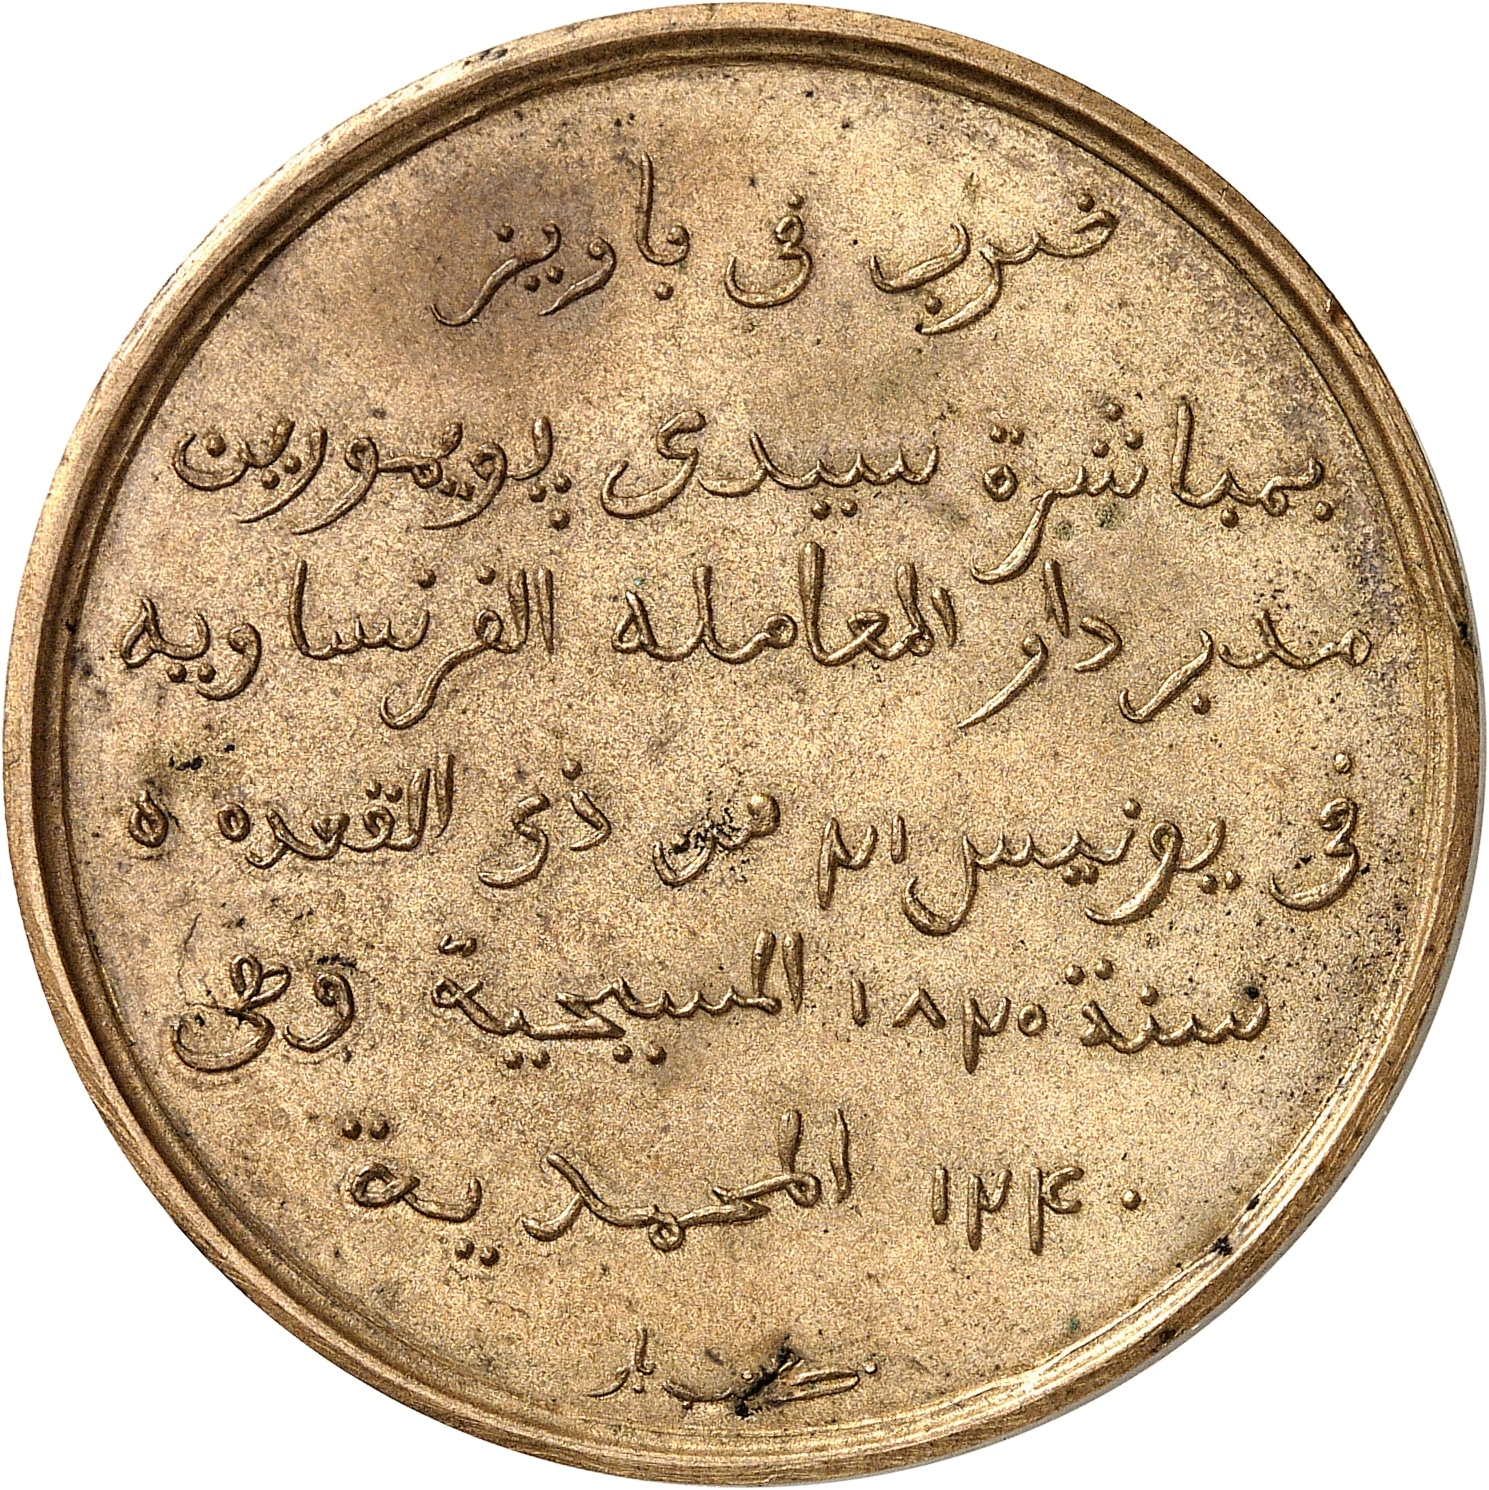 ضرب في باريز
بمباشرة سيدى پويمورين
مدير دار المعامله الفرنساويه
في يونيس ٢١ من ذي القعده ٥
سنة ١٨٢٥ المسيحية وفى
١٢٤٠ المحمدية